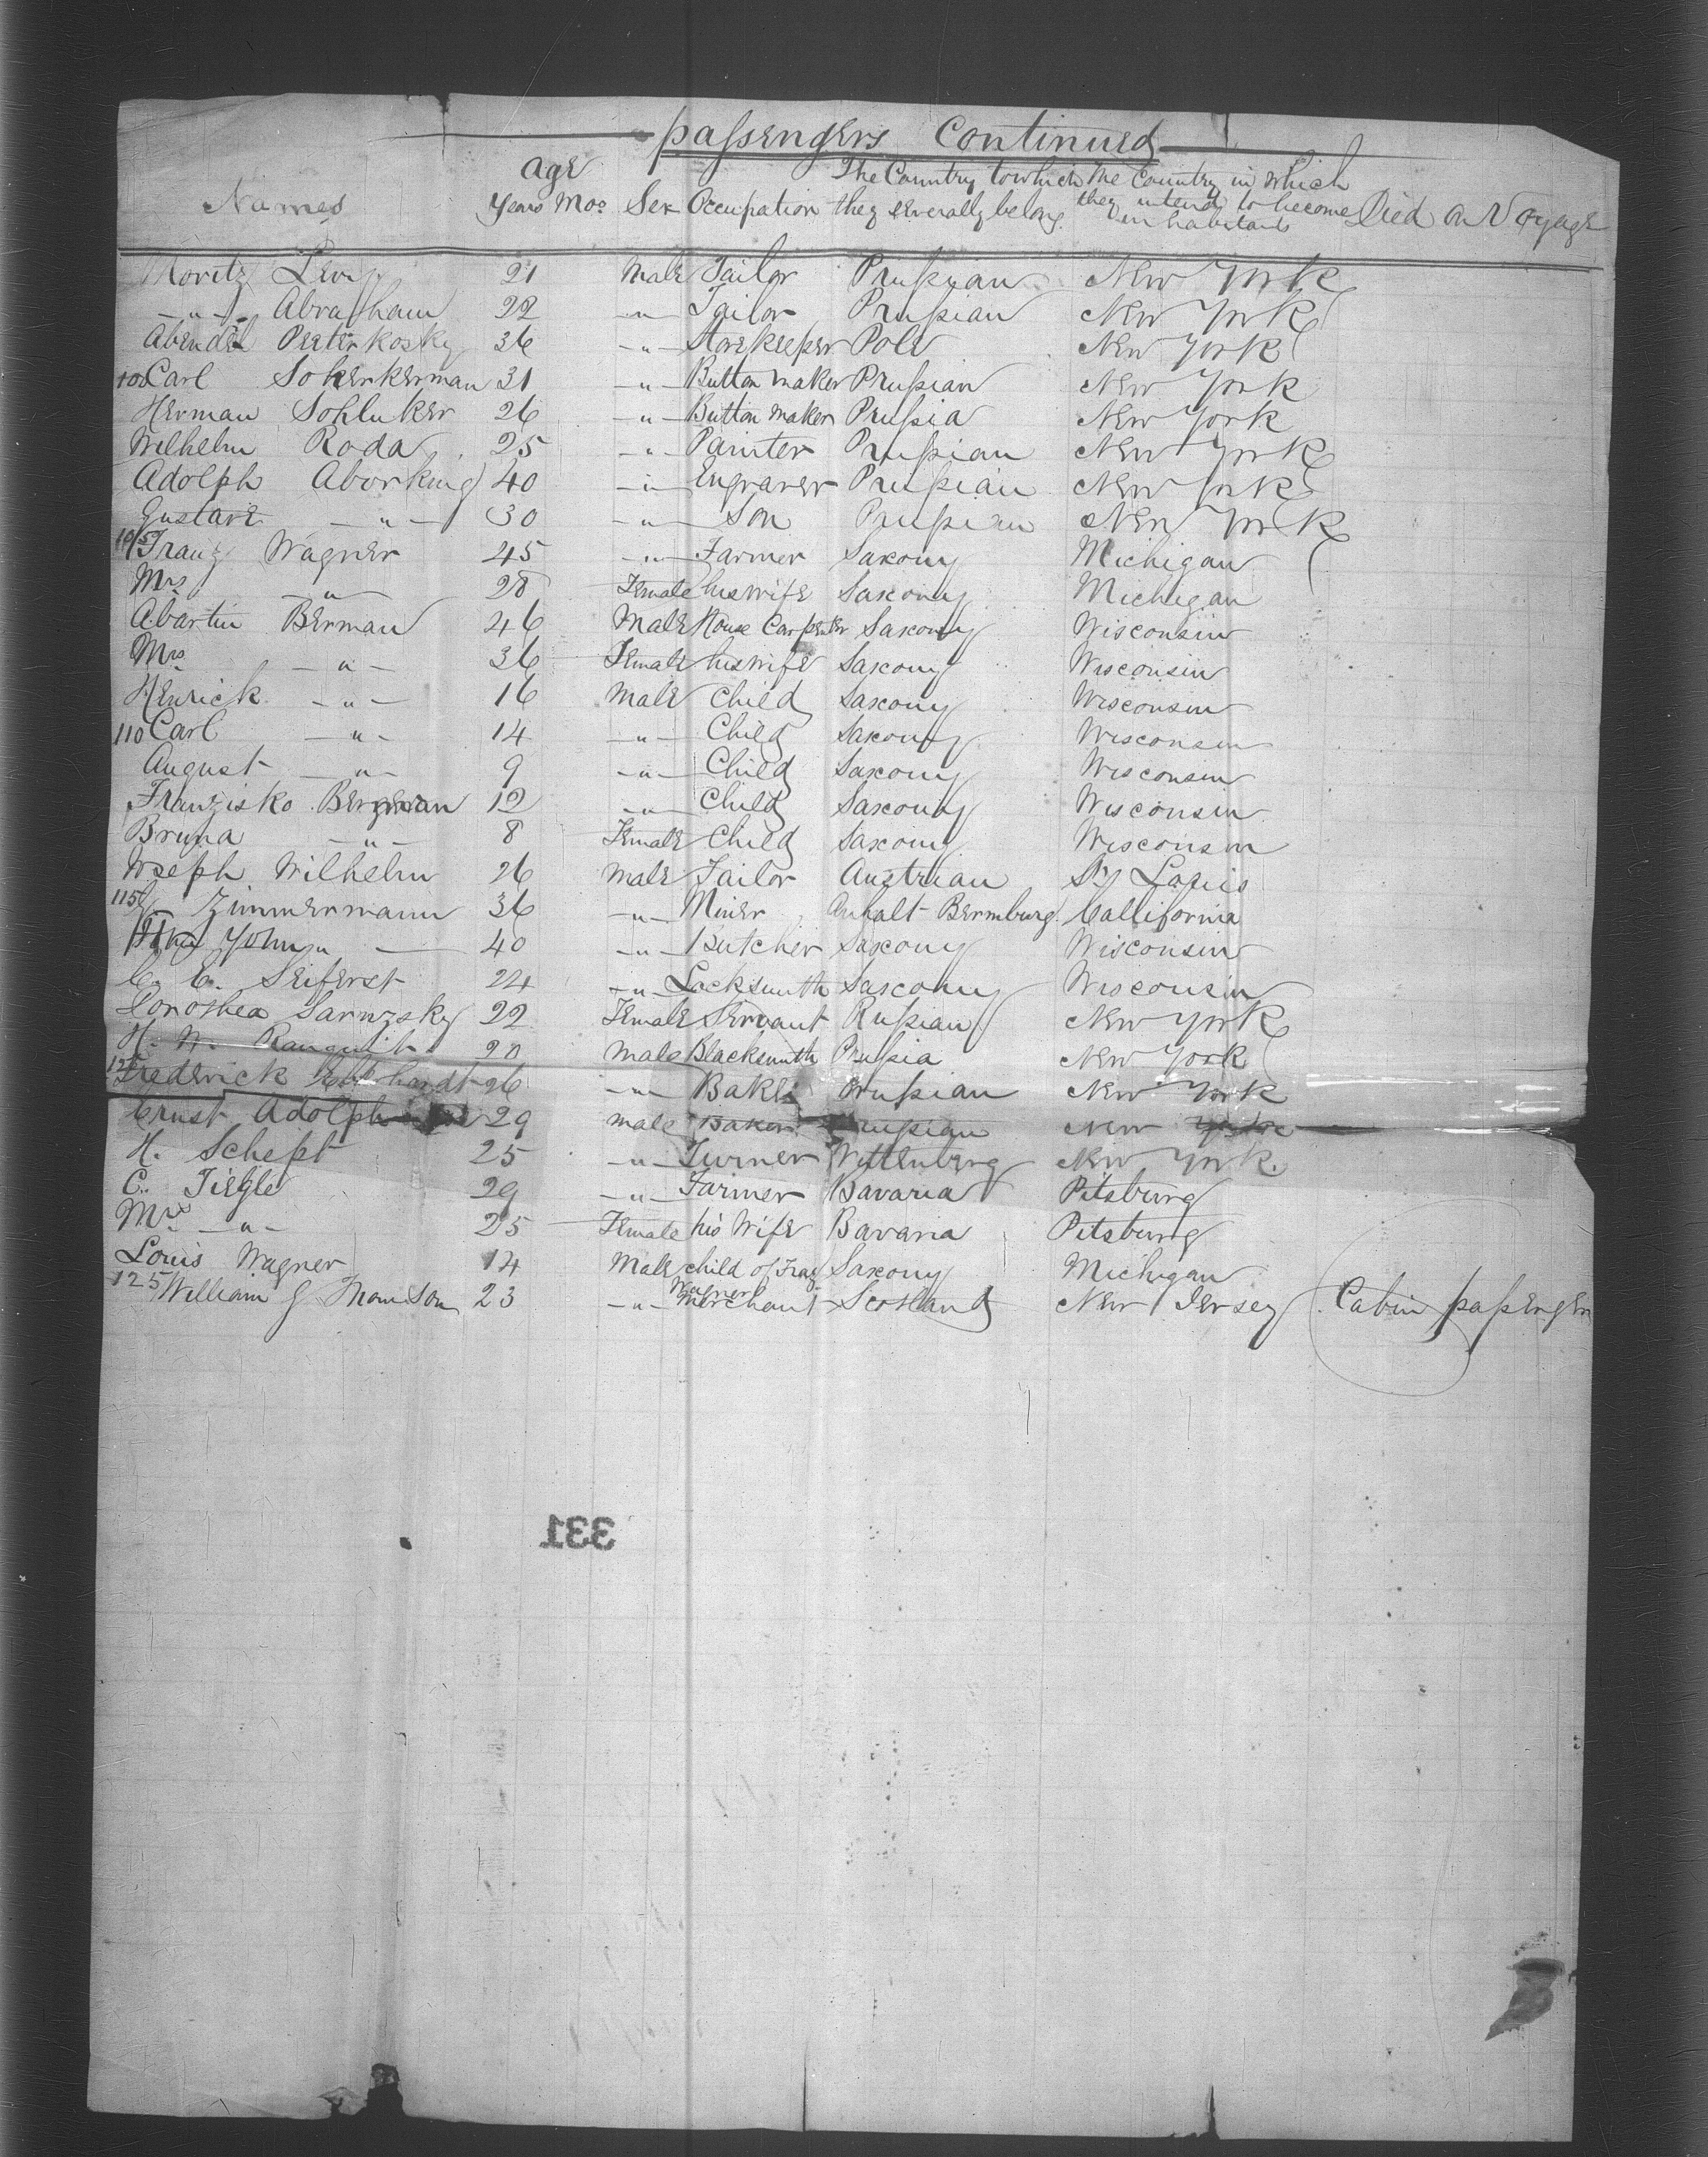 passengers Continued
Names age Years Mos Sex Occupation The Country to which they severally belong The Country in which they intend to become inhabitants Died on Voyage
Moritz Levy 21 Male Tailor Prussian New York
" Abraham 22 " Tailor Prussian New York
Peeterkosky 36 " Storekeeper Pole New York
100 Carl Sokerkerman 31 " Button maker Prussian New York
Herman Sohluker 26 " Button maker Prussia New York
Wilhelm Roda 25 " Painter Prussian New York
Adolph Aborking 40 " Engraver Prussian New York
Gustave " 30 " Son Prussian New York
105 Franz Wagner 45 " Farmer Saxony Michigan
Mrs " 28 Female his wife Saxony Michigan
Berman 46 Male House Carpenter Saxony Wisconsin
Mrs " 36 Female his wife Saxony Wisconsin
Henrick " 16 Male Child Saxony Wisconsin
110 Carl " 14 " Child Saxony Wisconsin
August " 9 " Child Saxony Wisconsin
Franzisko 12 " Child Saxony Wisconsin
Bruna " 8 Female Child Saxony Wisconsin
Joseph Wilhelm 26 Male Tailor Austrian St Louis
115 Zimmermann 36 " Miner Anhalt Bernburg California
John 40 " Butcher Saxony Wisconsin
C. C. Seiferst 24 " Locksmith Saxony Wisconsin
Dorothea Sarnzsky 22 Female Servant Russian New York
H. W. 20 Male Blacksmith Prussia New York
Frederick 26 " Baker Prussian New York
Ernst Adolph 29 male Baker Prussian New York
H. Schept 25 " Turner Wittenberg New York
C. Tiegle 29 " Farmer Bavaria Pitsburg
Mrs " 25 Female his Wife Bavaria Pitsburg
Louis Wagner 14 Male child of Franz Wagner Saxony Michigan
125 William G Thomson 23 " Merchant Scotland New Jersey Cabin passenger
331